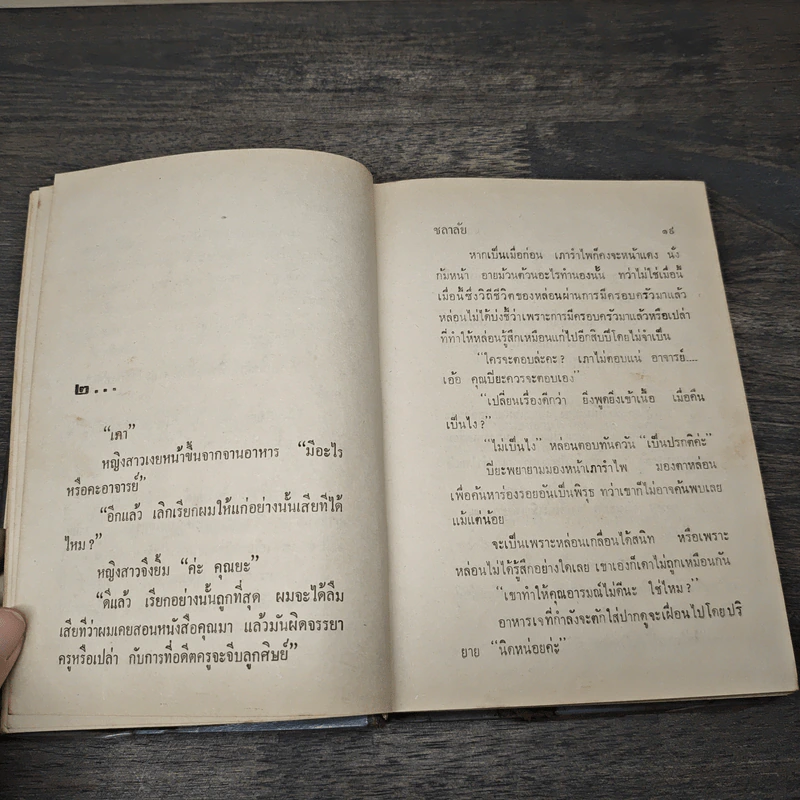 ๒...
“เภา”
หญิงสาวเงยหน้าขึ้นจากจานอาหาร “มีอะไร
หรือคะอาจารย์”
“อีกแล้ว เลิกเรียกผมให้แก่อย่างนั้นเสียทีได้
ไหม?”
หญิงสาวจึงยิ้ม “ค่ะ คุณยะ”
“ดีแล้ว เรียกอย่างนั้นถูกที่สุด ผมจะได้ลืม
เสียที่ว่าผมเคยสอนหนังสือคุณมา แล้วมันผิดจรรยา
ครูหรือเปล่า กับการที่อดีตครูจะจีบลูกศิษย์”
ชลาลัย ๑๙
หากเป็นเมื่อก่อน เภารำไพก็คงจะหน้าแดง นั่ง
ก้มหน้า อายม้วนต้วนอะไรทำนองนั้น ทว่าไม่ใช่เมื่อนี้
เมื่อนี้ซึ่งวิถีชีวิตของหล่อนผ่านการมีครอบครัวมาแล้ว
หล่อนไม่ได้บ่งชี้ว่าเพราะการมีครอบครัวมาแล้วหรือเปล่า
ที่ทำให้หล่อนรู้สึกเหมือนแก่ไปอีกสิบปีโดยไม่จำเป็น
“ใครจะตอบล่ะคะ? เภาไม่ตอบแน่ อาจารย์....
เอ้อ คุณปิยะควรจะตอบเอง”
“เปลี่ยนเรื่องดีกว่า ยิ่งพูดยิ่งเข้าเนื้อ เมื่อคืน
เป็นไง?”
“ไม่เป็นไง” หล่อนตอบทันควัน “เป็นปรกติค่ะ”
ปิยะพยายามมองหน้าเภารำไพ มองตาหล่อน
เพื่อค้นหาร่องรอยอันเป็นพิรุธ ทว่าเขาก็ไม่อาจค้นพบเลย
แม้แต่น้อย
จะเป็นเพราะหล่อนเกลื่อนได้สนิท หรือเพราะ
หล่อนไม่ได้รู้สึกอย่างใดเลย เขาเองก็เดาไม่ถูกเหมือนกัน
“เขาทำให้คุณอารมณ์ไม่ดีนะ ใช่ไหม?”
อาหารเจที่กำลังจะตักใส่ปากดูจะเฝื่อนไปโดยปริ
ยาย “นิดหน่อยค่ะ”